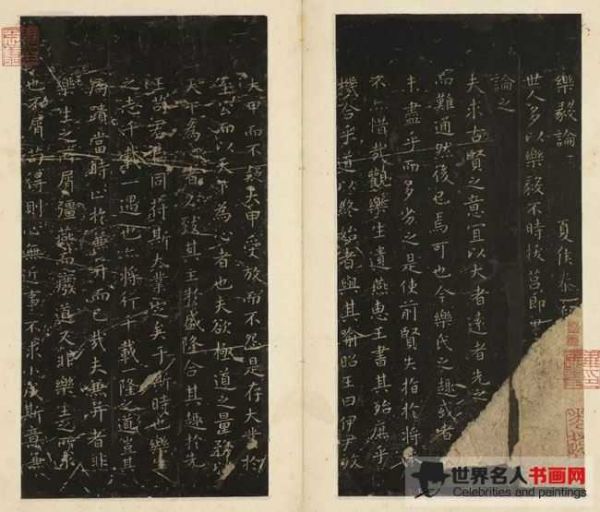 樂毅論 夏侯泰
世人多以樂毅不時拔莒即
論之
夫求古賢之意宜以大者遠者先之
而難通然後已焉可也今樂氏之趣或者
未盡乎而多劣之是使前賢失指於將
不亦惜哉觀樂生遺燕惠王書其殆庶乎
機合乎道以終始者與其喻昭王曰伊尹放
大甲而不疑大甲受放而不怨是存大業於
至公而以天下為心者也夫欲極道之量務以
天下為心者必致其主於盛隆合其趣於先
王苟君臣同苻斯大業定矣于斯時也樂
之志千載一遇也亦將行千載一隆之道豈其
局蹟當時止於兼并而已哉夫兼并者非
樂生之所屑彊燕而廢道又非樂生之所求
也不屑苟得則心無近事不求小成斯意兼
世界名人书画网
Celebrities and paintings